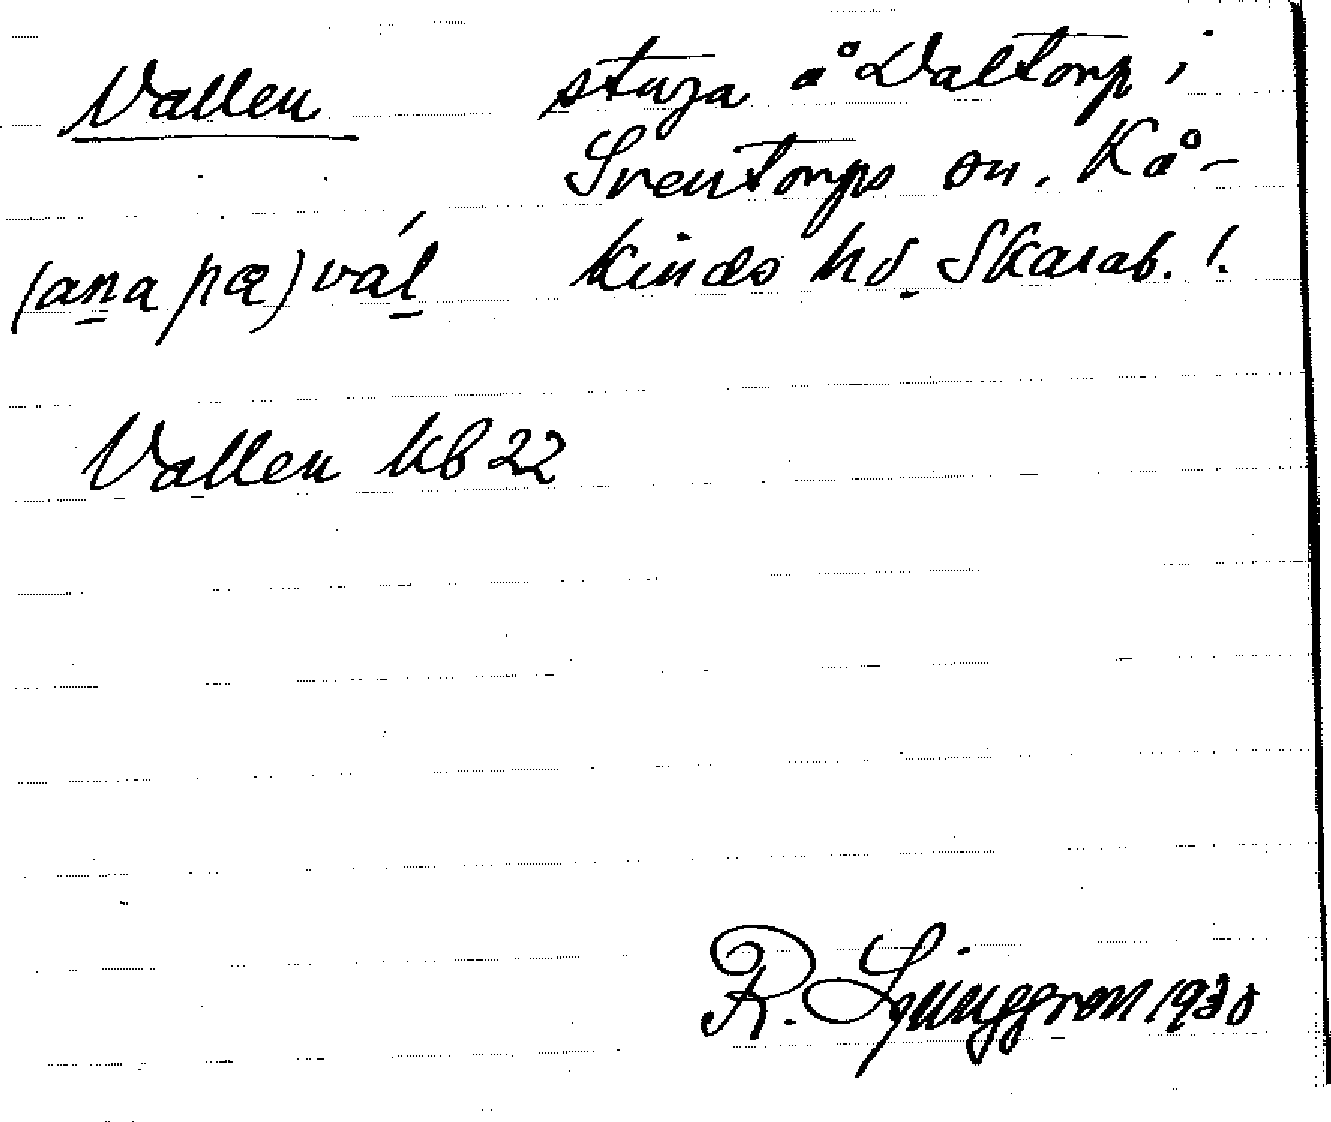 Vallen
stuga å Valtorp i
Sventorps sn. Kå-
kinds hd. Skarab. l.
(ana pæ) vál
Vallen kb 22
R. Ljunggren 1930